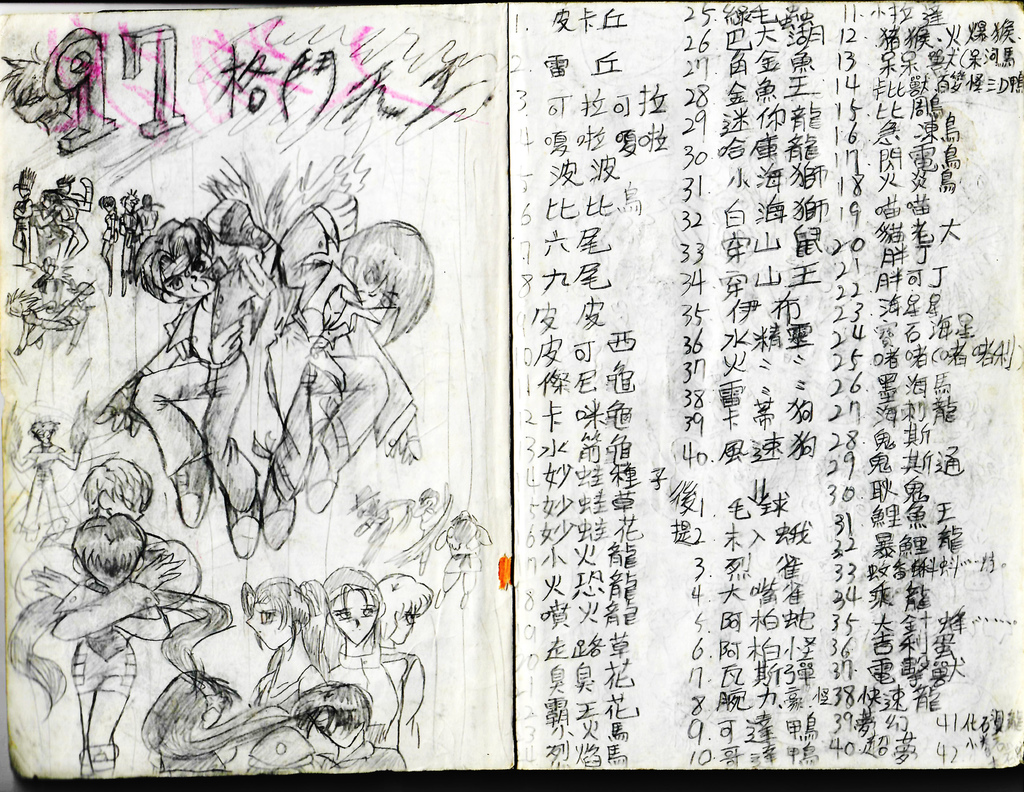 97 格鬥天王
1. 皮卡丘
2. 雷丘
3. 可拉可拉
4. 嘎啦嘎啦
5. 波波
6. 比比鳥
7. 六尾
8. 九尾
皮皮
10 皮可西
11 傑尼龜
12 卡咪龜
13 水箭龜
14 妙蛙種子
15 妙蛙草
16 妙蛙花
17 小火龍
火恐龍
18 噴火龍
19 走路草
20 臭臭花
21 霸王花
23 小火馬
24 烈焰馬
25. 綠毛蟲
26 巴大蝴
27 角金魚
28 金魚王
29 迷你龍
30. 哈庫龍
31. 小海獅
32 白海獅
33 穿山鼠
34 穿山王
35 伊布
36 水精靈
37 火〃〃
38 雷〃〃
39 卡蒂狗
40. 風速狗
後提
1. 毛球
2. 末入蛾
3. 烈雀
4. 大嘴雀
5. 阿柏蛇
6. 阿柏怪
7. 瓦斯彈
8 腕力 豪怪
9. 可達鴨
10. 哥達鴨
11. 小拉達
12. 豬猴、火爆猴
13 呆呆獸(呆河馬
14 卡比獸 百變怪 三D鴨
15 比鵰
16 急凍鳥
17 閃電鳥
18 火炎鳥
19 喵喵
20 貓老大
21 胖丁
22 胖可丁
23 海星星
24 寶石海星
25 啫啫(啫啫利)
26. 墨海馬
27. 海刺龍
28 鬼斯
29 鬼斯通
30. 耿鬼
31 鯉魚王
32 暴鯉龍
33 蚊香蝌蚪……
34 乘龍
35 大針蜂……
36 吉利蛋
37. 電擊獸
38 快速龍
39 夢幻
40. 超夢
41 化石翼龍
42 小